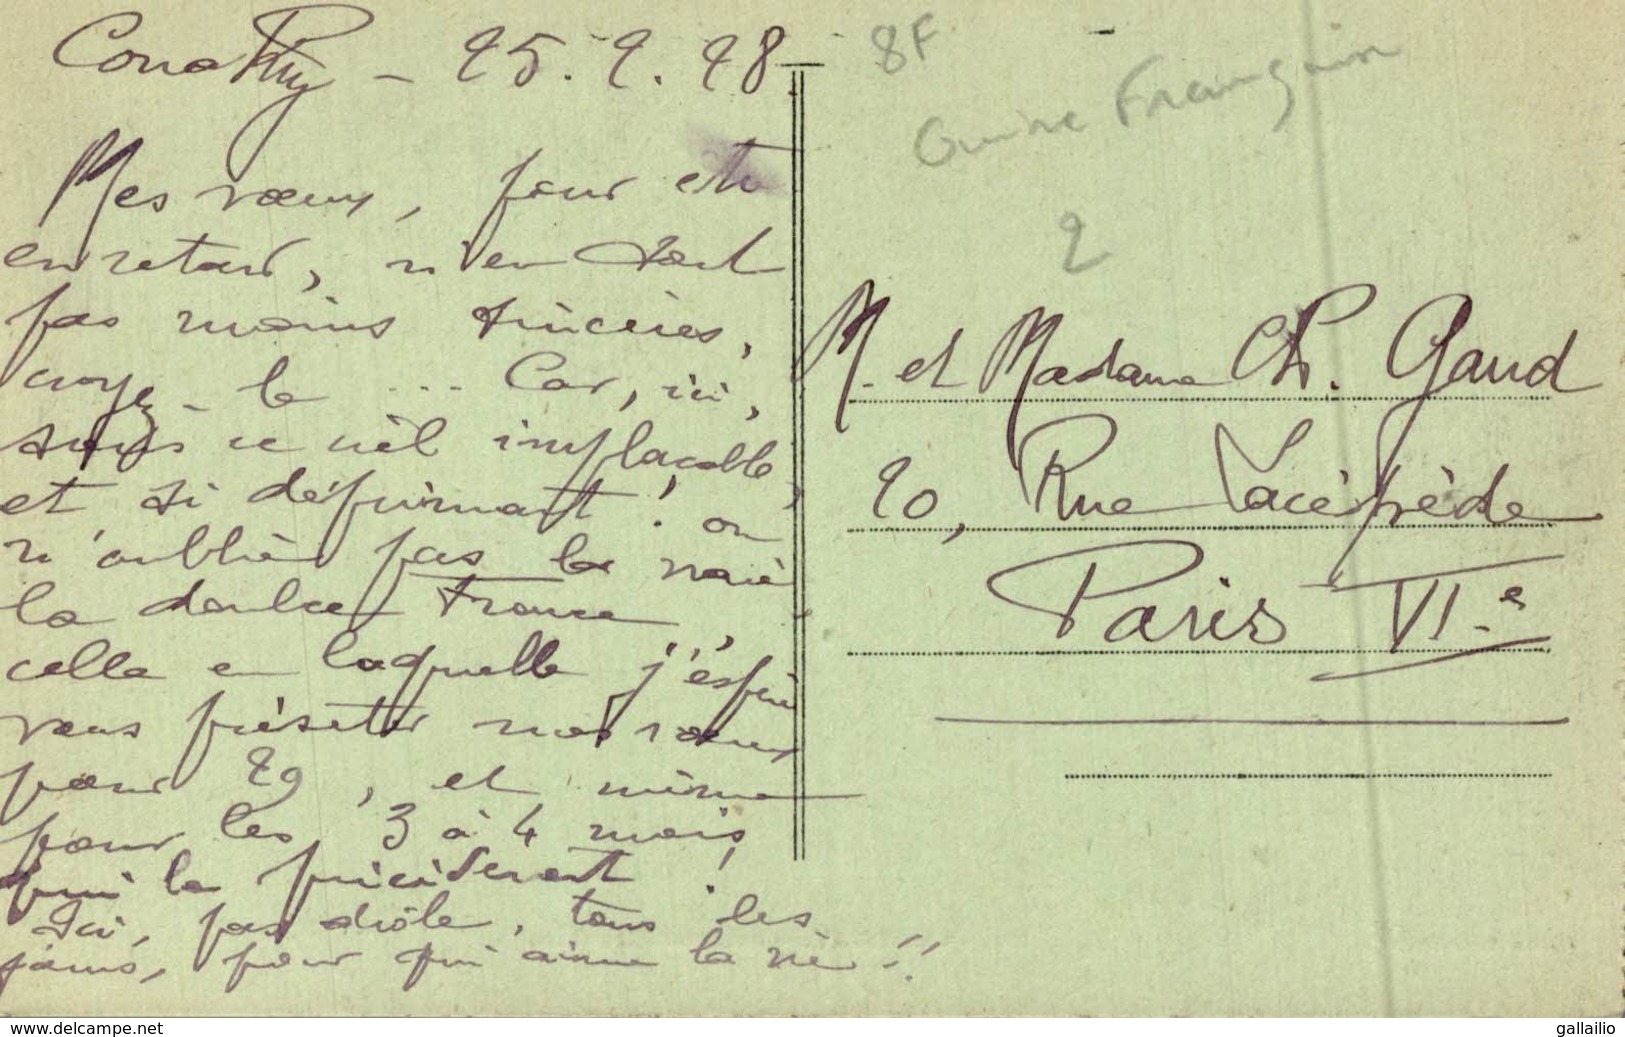 Conakry - 25.2.28 -
Mes vœux, pour être
en retard, n'en sont
pas moins sincères,
croyez-le ... Car, ici,
sous ce ciel implacable,
et si déprimant ! on
n'oublie pas la vraie
la doulce France,
celle en laquelle j'espère
vous présenter nos vœux
pour 29, et même
pour les 3 à 4 mois
qui le précèderont !
Ici, pas drôle, tous les
jours, pour qui aime la vie !!
8F
Guine Français
2
M. et Madame Ch. Gaud
20, Rue Lacépède
Paris VI.e
www.delcampe.net
gallailio